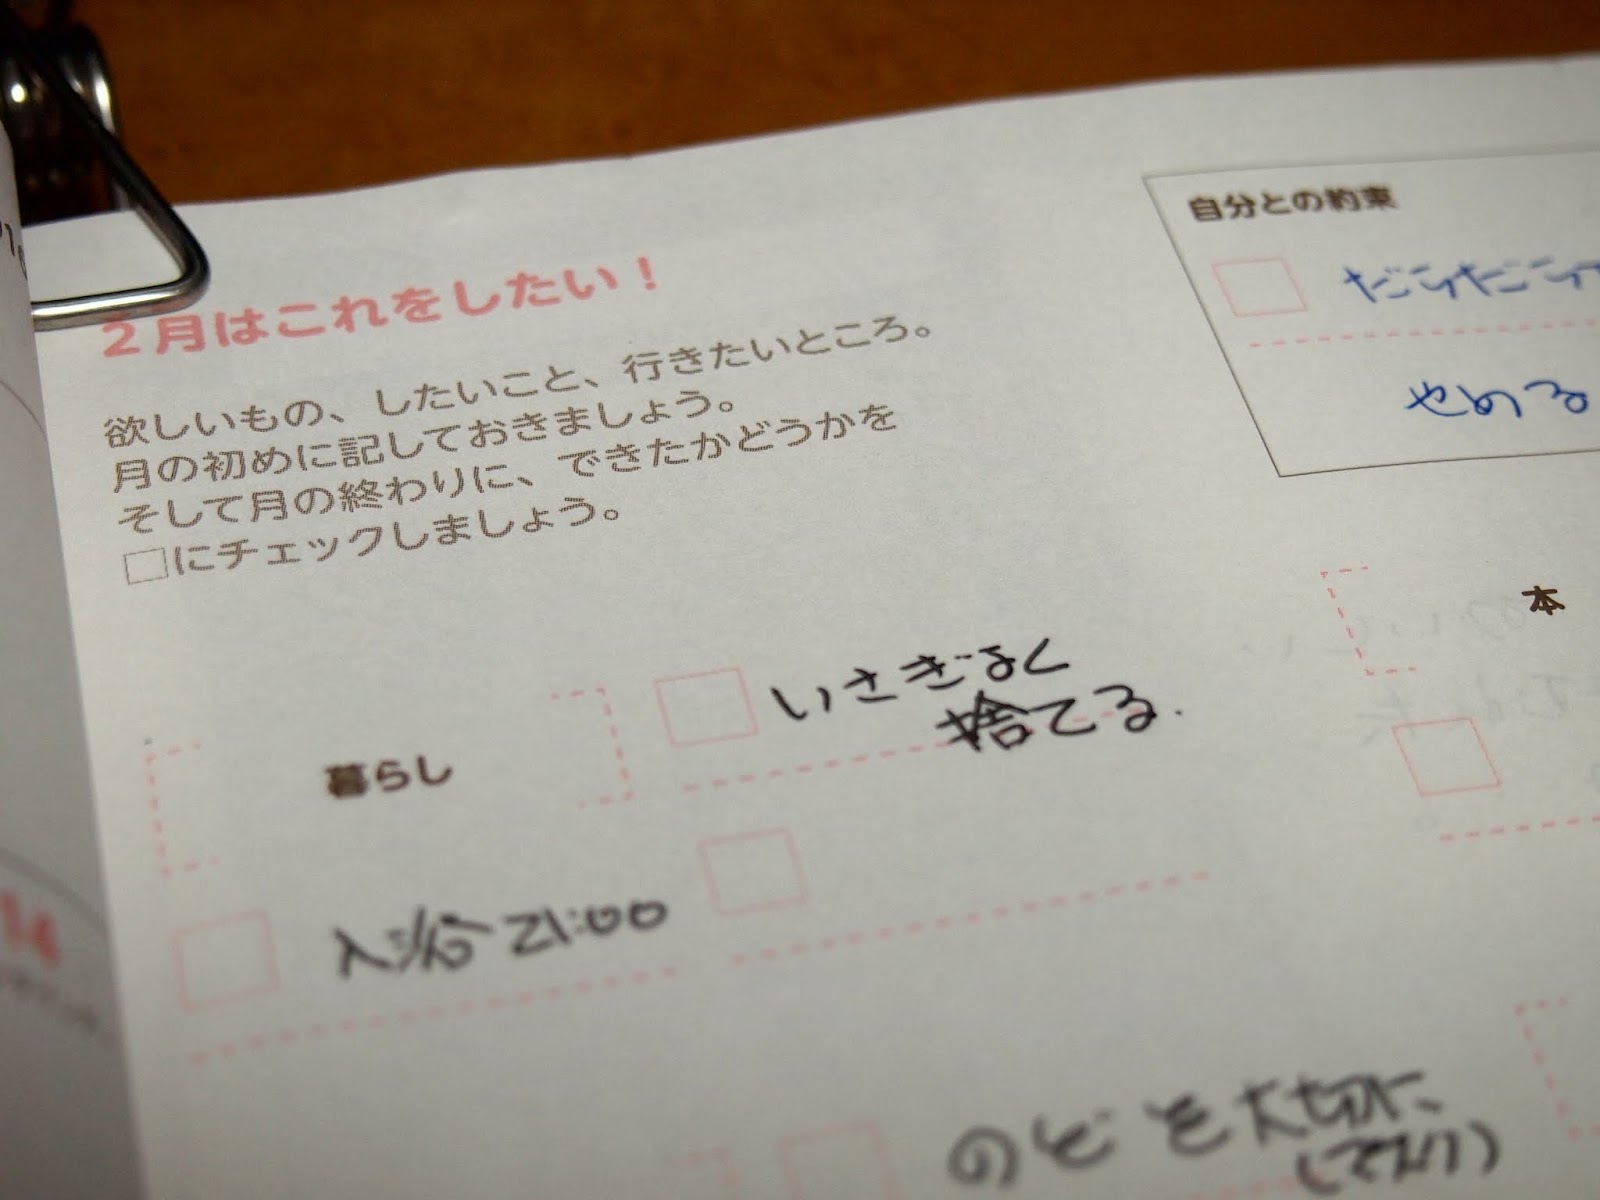 2月はこれをしたい！
欲しいもの、したいこと、行きたいところ。
月の初めに記しておきましょう。
そして月の終わりに、できたかどうかを
□にチェックしましょう。
自分との約束
だらだら
やめる
暮らし
いさぎよく
捨てる.
入浴 21:00
本
のどを大切に、
(マスク)
14